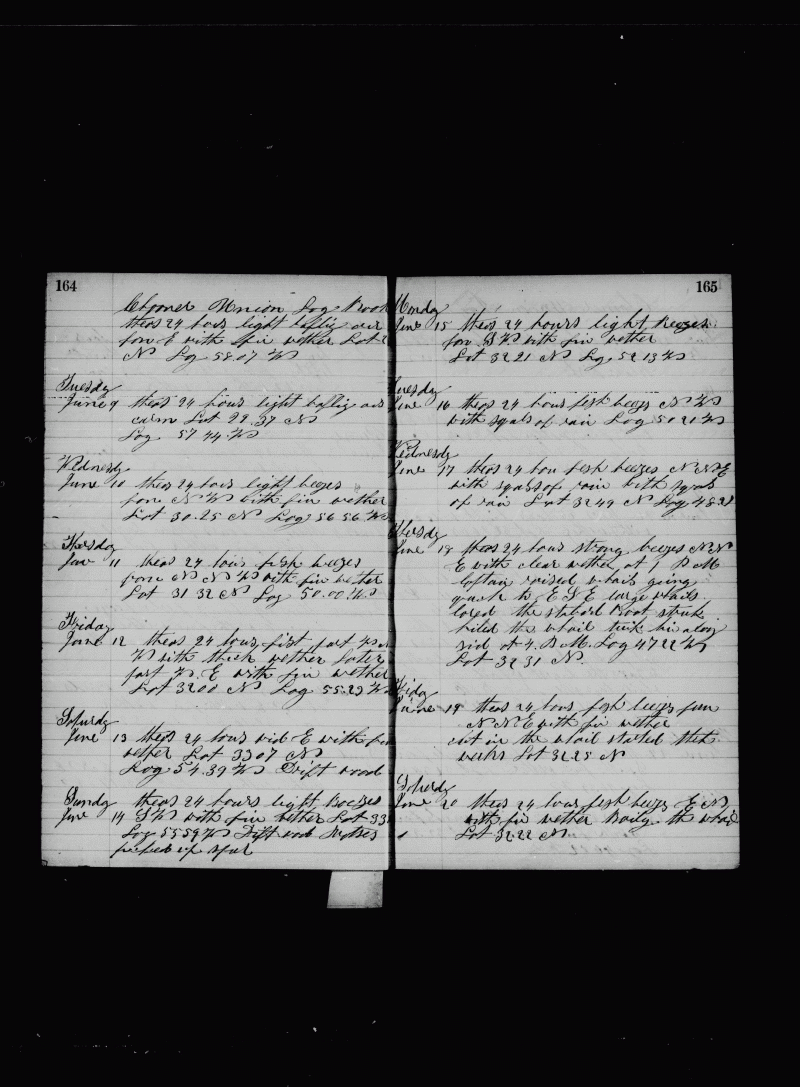 164
Union Log Book
theas 24 hours light baflig airs
E with fin wether Lat
N Log 58.07 W
Tuesday
June 9 theas 24 hours light baflig airs
calm Lat 29.37 N
Log 57 44 W
Wednesdy
June 10 theas 24 hours light
N W with fin wether
Lat 30.25 N Log 56 56 W
Thersday
11 theas 24 hours fresh
N N W with fin wether
Lat 31 32 N Log 50.00 W
Friday
June 12 theas 24 hours first part
W with thick wether later
part W. E with fin wether
Lat 32 00 N Log 55.29 W
Saturdy
June 13 theas 24 hours wid E with fin
wether Lat 33 07 N
Log 54.39 W Drift wood
Sunday theas 24 hours light
June 14 S W with fin wether Lat 33
Log 55 59 W Drift wood
picked up spar
165
Mondy
June 15 theas 24 hours light
S W with fin wether
Lat 32 21 N Log 52 13 W
Tuesday
June 16 theas 24 hours N W
with sqals of rain Log 50 20 W
Wednesdy
June 17 theas 24 hours N N E
with sqals of rain with sqals
of rain Lat 32 49 N Log 48.
Thersdy
June 18 theas 24 hours strong breezes N N
E with clear wether at 1 P M
Captain raised whails going
quick to E S E large whails
lored the starbord Boat struk
killed the whail tuck him along
sid at 4 P M. Log 47 22 W
Lat 32 31 N.
Friday
June 19 theas 24 hours
N N E with fin wether
cut in the whail started the
works Lat 32 25 N
Saterdy
June 20 theas 24 hours E N
with fin wether Boilg the whail
Lat 32.22 N